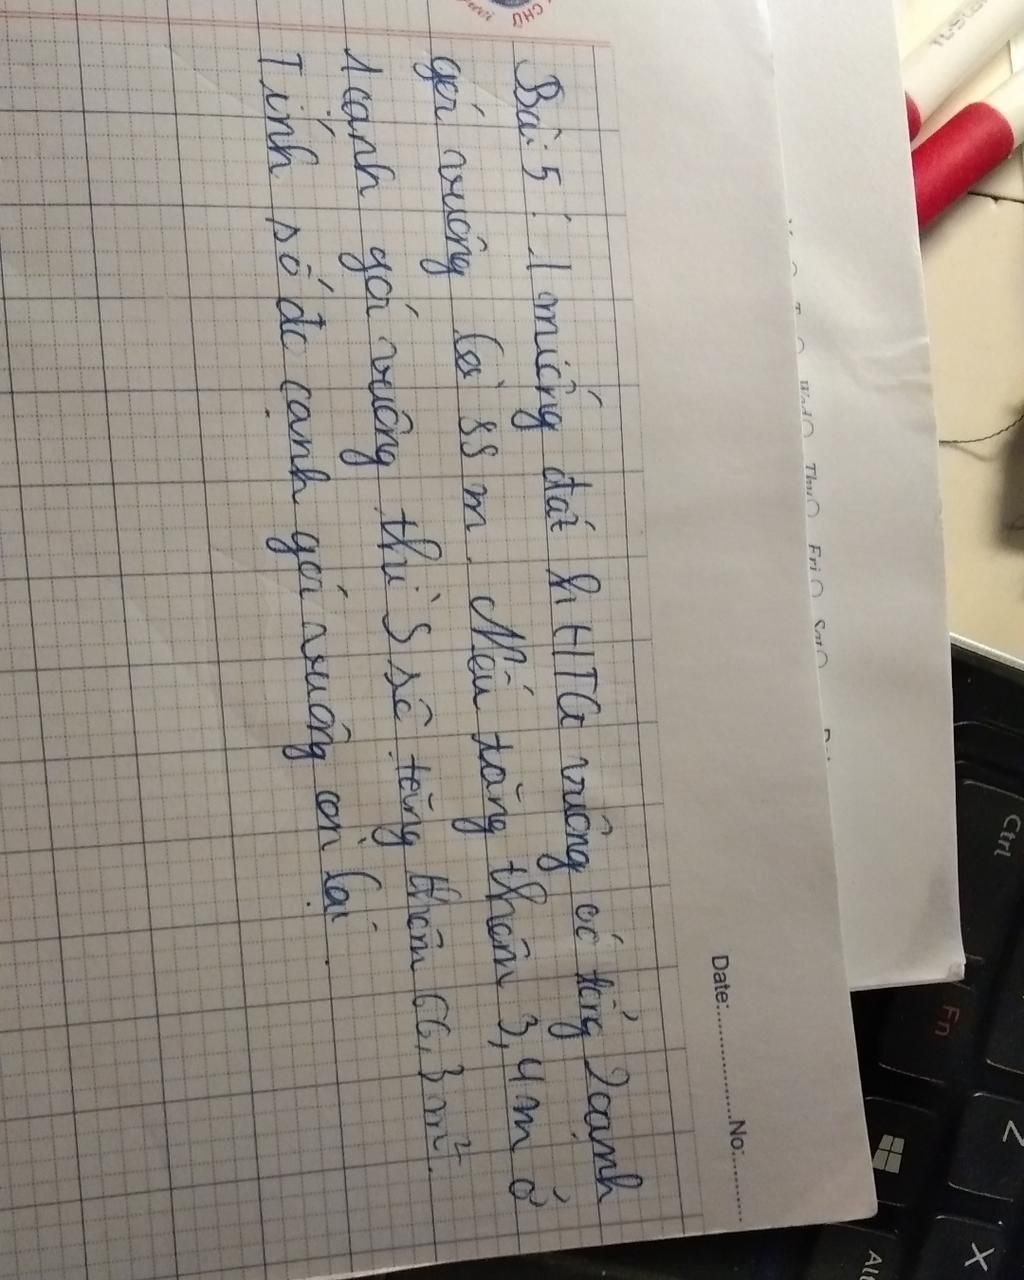 CHỨ
Date:.............No:.............
Bài 5: 1 miếng đất h HTG vuông có tổng 2 cạnh
gói vuông là 88 m. Nếu tăng thêm 3,4 m ở
1 cạnh gói vuông thì S sẽ tăng thêm 66,3 m².
Tính số đo cạnh gói vuông còn lại.
Thu Fri
Ctrl
Fn
Z
X